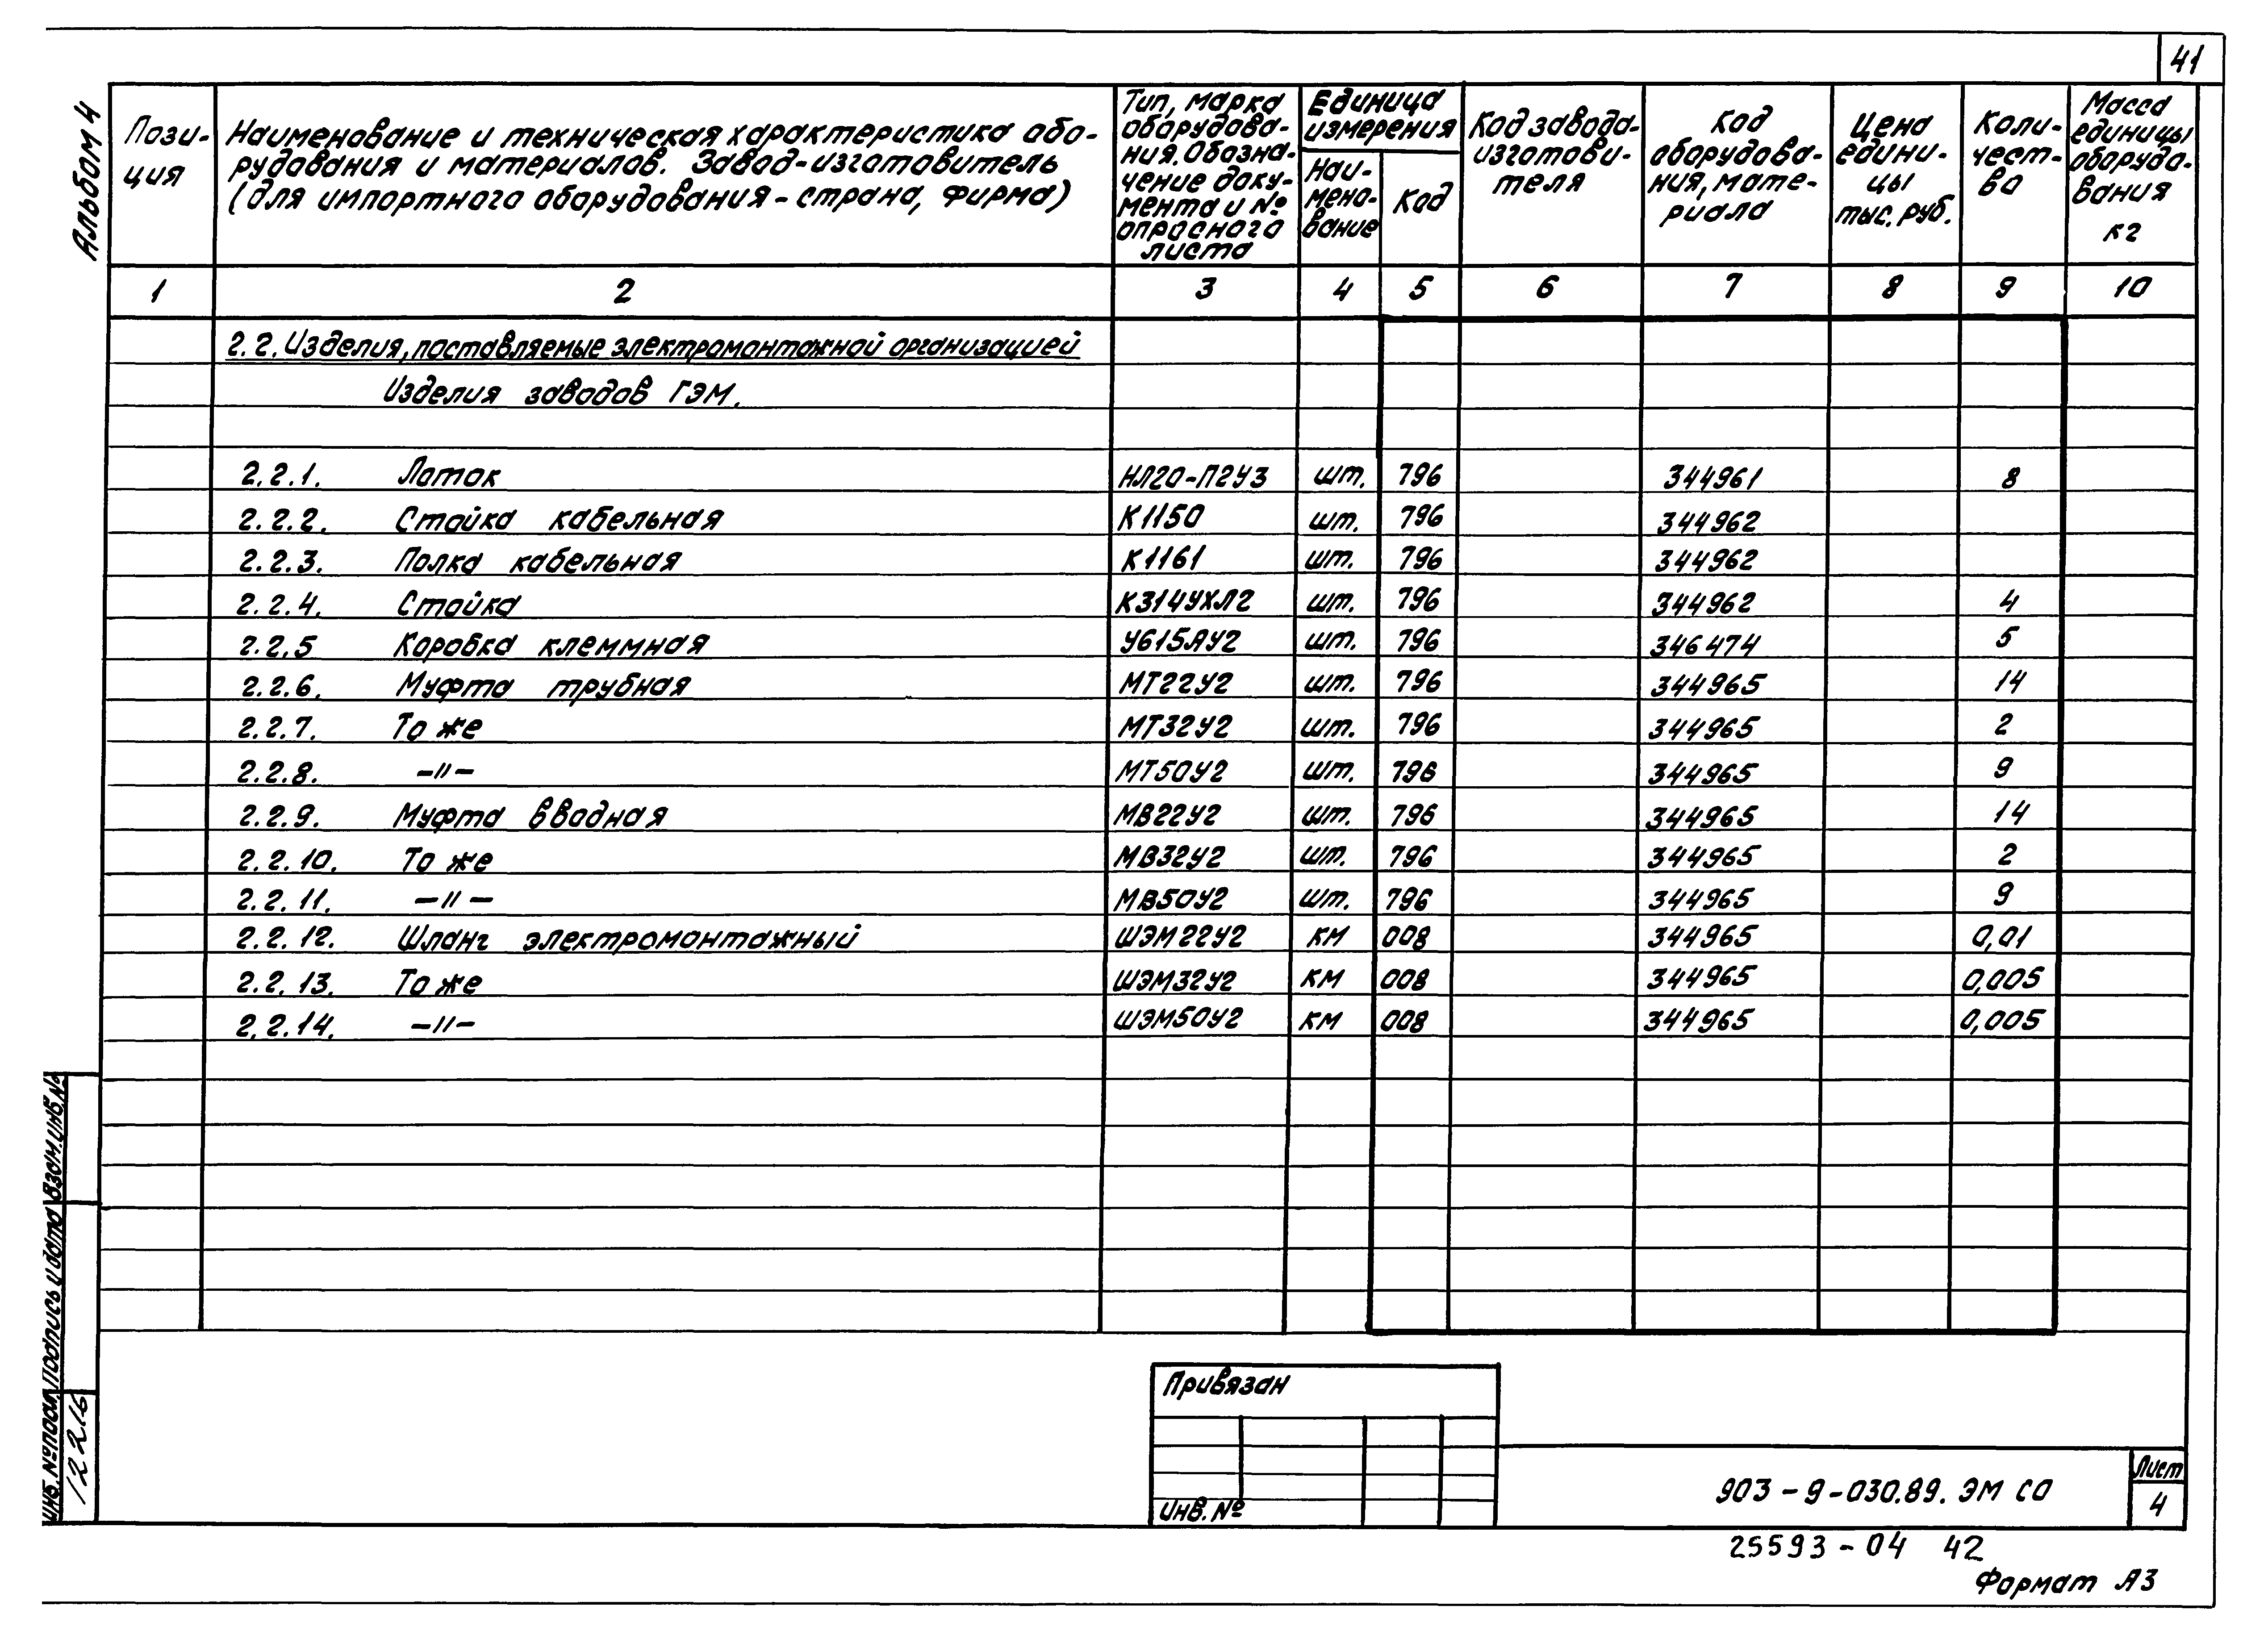 41
Альбом 4
Пози-
ция
Наименование и техническая характеристика обо-
рудования и материалов. Завод-изготовитель
(для импортного оборудования - страна, фирма)
Тип, марка
оборудова-
ния. Обозна-
чение доку-
мента и №
опросного
листа
Единица
измерения
Наи-
мено-
вание
Код
Код завода-
изготови-
теля
Код
оборудова-
ния, мате-
риала
Цена
едини-
цы
тыс. руб.
Коли-
чест-
во
Масса
единицы
оборудо-
вания
кг
1 2 3 4 5 6 7 8 9 10
2.2. Изделия, поставляемые электромонтажной организацией
Изделия заводов ГЭМ.
2.2.1. Лоток НЛ20-П2У3 шт. 796 344961 8
2.2.2. Стойка кабельная К1150 шт. 796 344962
2.2.3. Полка кабельная К1161 шт. 796 344962
2.2.4. Стойка К314УХЛ2 шт. 796 344962 4
2.2.5 Коробка клеммная У615АУ2 шт. 796 346474 5
2.2.6. Муфта трубная МТ22У2 шт. 796 344965 14
2.2.7. То же МТ32У2 шт. 796 344965 2
2.2.8. -"- МТ50У2 шт. 796 344965 9
2.2.9. Муфта вводная МВ22У2 шт. 796 344965 14
2.2.10. То же МВ32У2 шт. 796 344965 2
2.2.11. -"- МВ50У2 шт. 796 344965 9
2.2.12. Шланг электромонтажный ШЭМ22У2 км 008 344965 0,01
2.2.13. То же ШЭМ32У2 км 008 344965 0,005
2.2.14. -"- ШЭМ50У2 км 008 344965 0,005
Взам. инв. №
Подпись и дата
Инв. № подл.
12216
Привязан
Инв. №
903-9-030.89. ЭМ СО
Лист
4
25593-04 42
Формат А3